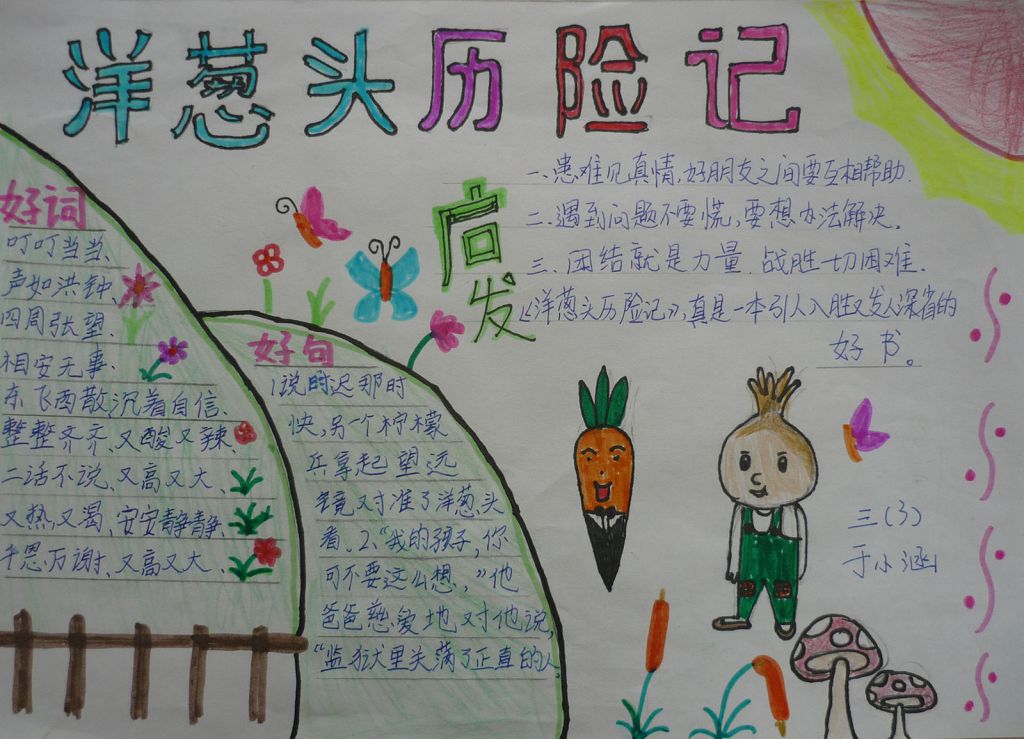 洋葱头历险记
好词
叮叮当当、
声如洪钟、
四周张望、
相安无事、
东飞西散,沉着自信、
整整齐齐、又酸又辣、
二话不说、又高又大、
又热,又渴,安安静静、
千恩万谢、又高又大、
好句
1、说时迟那时
快,另一个柠檬
兵享起望远
镜又寸准了洋葱头
看。2、“我的孩子,你
可不要这么想,”他
爸爸慈爱地对他说,
“监狱里关满了正直的人
启发
一、患难见真情,好朋友之间要互相帮助.
二、遇到问题不要慌,要想办法解决。
三、团结就是力量,战胜一切困难.
《洋葱头历险记》,真是一本引人入胜又发人深省的
好书。
三(3)
于小涵